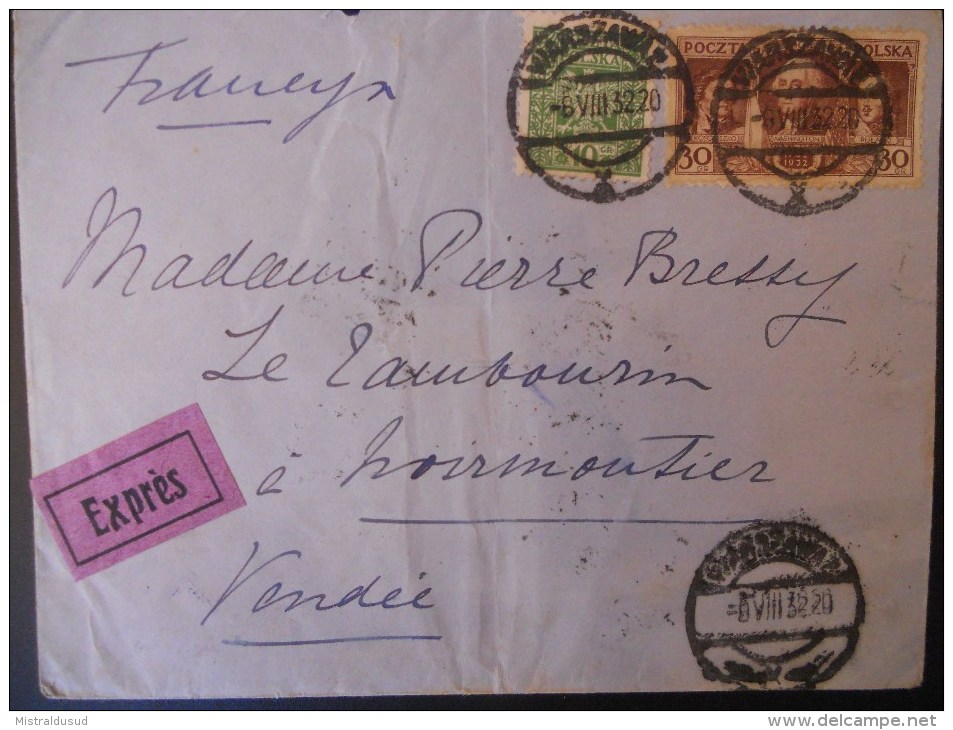 Francya
POLSKA
10
GR
WARSZAWA
-6 VIII 32 20
POCZTA POLSKA
WARSZAWA
-6 VIII 32 20
30 WASHINGTON 30
GR 1932 GR
Madame Pierre Bressy
Le Tambourin
à Noirmoutier
Vendée
Exprès
WARSZAWA
-6 VIII 32 20
Mistraldusud
http://www.delcampe.net